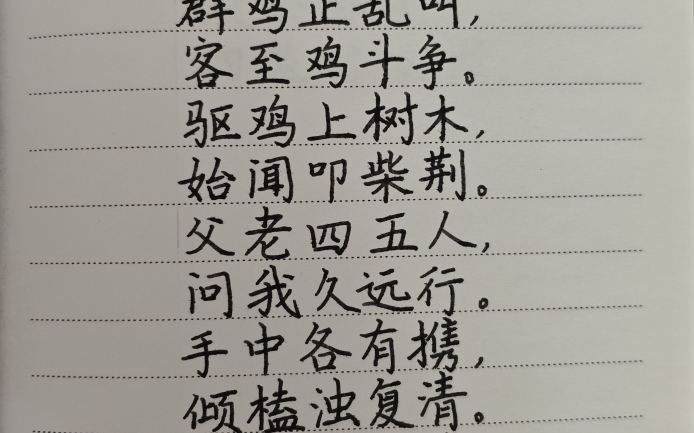 群鸡正乱叫，
客至鸡斗争。
驱鸡上树木，
始闻叩柴荆。
父老四五人，
问我久远行。
手中各有携，
倾榼浊复清。